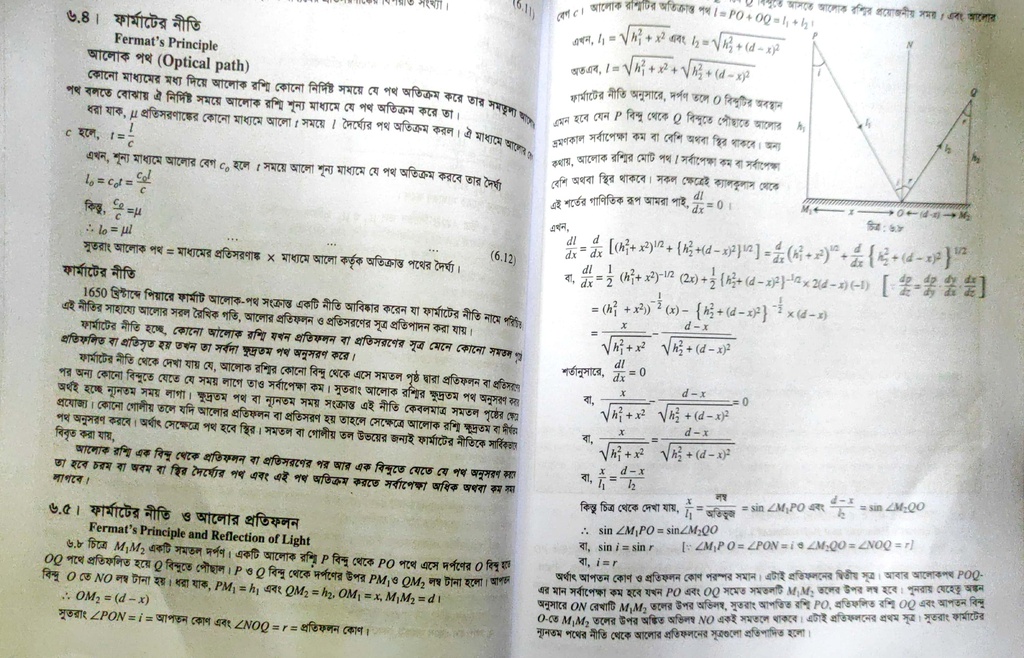 ৬.৪। ফার্মাটের নীতি
Fermat's Principle
আলোক পথ (Optical path)
কোনো মাধ্যমের মধ্য দিয়ে আলোক রশ্মি কোনো নির্দিষ্ট সময়ে যে পথ অতিক্রম করে তার সমতুল্য আলোক
পথ বলতে বোঝায় ঐ নির্দিষ্ট সময়ে আলোক রশ্মি শূন্য মাধ্যমে যে পথ অতিক্রম করে তা।
ধরা যাক, μ প্রতিসরণাঙ্কের কোনো মাধ্যমে আলো t সময়ে l দৈর্ঘ্যের পথ অতিক্রম করল। ঐ মাধ্যমে আলোর
c হলে, t = l/c
এখন, শূন্য মাধ্যমে আলোর বেগ c₀ হলে t সময়ে আলো শূন্য মাধ্যমে যে পথ অতিক্রম করবে তার দৈর্ঘ্য
l₀ = c₀t = c₀l/c
কিন্তু, c₀/c = μ
∴ l₀ = μl ... ... ... (6.12)
সুতরাং আলোক পথ = মাধ্যমের প্রতিসরণাঙ্ক × মাধ্যমে আলো কর্তৃক অতিক্রান্ত পথের দৈর্ঘ্য।
ফার্মাটের নীতি
1650 খ্রিস্টাব্দে পিয়ারে ফার্মাট আলোক-পথ সংক্রান্ত একটি নীতি আবিষ্কার করেন যা ফার্মাটের নীতি নামে পরিচিত
এই নীতির সাহায্যে আলোর সরল রৈখিক গতি, আলোর প্রতিফলন ও প্রতিসরণের সূত্র প্রতিপাদন করা যায়।
ফার্মাটের নীতি হচ্ছে, কোনো আলোক রশ্মি যখন প্রতিফলন বা প্রতিসরণের সূত্র মেনে কোনো সমতল পৃষ্ঠে
প্রতিফলিত বা প্রতিসৃত হয় তখন তা সর্বদা ক্ষুদ্রতম পথ অনুসরণ করে।
ফার্মাটের নীতি থেকে দেখা যায় যে, আলোক রশ্মির কোনো বিন্দু থেকে এসে সমতল পৃষ্ঠ দ্বারা প্রতিফলন বা প্রতিসরণের
পর অন্য কোনো বিন্দুতে যেতে যে সময় লাগে তাও সর্বাপেক্ষা কম। সুতরাং আলোক রশ্মির ক্ষুদ্রতম পথ অনুসরণ করার
অর্থই হচ্ছে ন্যূনতম সময় লাগা। ক্ষুদ্রতম পথ বা ন্যূনতম সময় সংক্রান্ত এই নীতি কেবলমাত্র সমতল পৃষ্ঠের ক্ষেত্রে
প্রযোজ্য। কোনো গোলীয় তলে যদি আলোর প্রতিফলন বা প্রতিসরণ হয় তাহলে সেক্ষেত্রে আলোক রশ্মি ক্ষুদ্রতম বা দীর্ঘতম
পথ অনুসরণ করবে। অর্থাৎ সেক্ষেত্রে পথ হবে স্থির। সমতল বা গোলীয় তল উভয়ের জন্যই ফার্মাটের নীতিকে সার্বিকভাবে
বিবৃত করা যায়,
আলোক রশ্মি এক বিন্দু থেকে প্রতিফলন বা প্রতিসরণের পর আর এক বিন্দুতে যেতে যে পথ অনুসরণ করে
তা হবে চরম বা অবম বা স্থির দৈর্ঘ্যের পথ এবং এই পথ অতিক্রম করতে সর্বাপেক্ষা অধিক অথবা কম সময়
লাগবে।
৬.৫। ফার্মাটের নীতি ও আলোর প্রতিফলন
Fermat's Principle and Reflection of Light
৬.৮ চিত্রে M₁M₂ একটি সমতল দর্পণ। একটি আলোক রশ্মি P বিন্দু থেকে PO পথে এসে দর্পণের O বিন্দু হতে
OQ পথে প্রতিফলিত হয়ে Q বিন্দুতে পৌছাল। P ও Q বিন্দু থেকে দর্পণের উপর PM₁ ও QM₂ লম্ব টানা হলো। আপতন
বিন্দু O তে NO লম্ব টানা হয়। ধরা যাক, PM₁ = h₁ এবং QM₂ = h₂, OM₁ = x, M₁M₂ = d।
∴ OM₂ = (d – x)
সুতরাং ∠PON = i = আপতন কোণ এবং ∠NOQ = r = প্রতিফলন কোণ।
বেগ c। আলোক রশ্মিটির অতিক্রান্ত পথ l = PO + OQ = l₁ + l₂।
এখন, l₁ = √(h₁² + x²) এবং l₂ = √(h₂² + (d – x)²)
অতএব, l = √(h₁² + x²) + √(h₂² + (d – x)²)
ফার্মাটের নীতি অনুসারে, দর্পণ তলে O বিন্দুটির অবস্থান
এমন হবে যেন P বিন্দু থেকে Q বিন্দুতে পৌছাতে আলোর
ভ্রমণকাল সর্বাপেক্ষা কম বা বেশি অথবা স্থির থাকবে। অন্য
কথায়, আলোক রশ্মির মোট পথ l সর্বাপেক্ষা কম বা সর্বাপেক্ষা
বেশি অথবা স্থির থাকবে। সকল ক্ষেত্রেই ক্যালকুলাস থেকে
এই শর্তের গাণিতিক রূপ আমরা পাই, dl/dx = 0।
P N Q
i l₁ h₁ l₂ r h₂
i r
M₁ x O (d-x) M₂
চিত্র : ৬.৮
এখন,
dl/dx = d/dx [(h₁² + x²)^1/2 + {h₂² + (d – x)²}^1/2] = d/dx (h₁² + x²)^1/2 + d/dx {h₂² + (d – x)²}^1/2
বা, dl/dx = 1/2 (h₁² + x²)^–1/2 (2x) + 1/2 {h₂² + (d – x)²}^–1/2 × 2(d – x)(–1) [∵ dp/dz = dp/dy · dy/dx · dx/dz]
= (h₁² + x²))^–1/2 (x) – {h₂² + (d – x)²}^–1/2 × (d – x)
= x/√(h₁² + x²) – (d – x)/√(h₂² + (d – x)²)
শর্তানুসারে, dl/dx = 0
বা, x/√(h₁² + x²) – (d – x)/√(h₂² + (d – x)²) = 0
বা, x/√(h₁² + x²) = (d – x)/√(h₂² + (d – x)²)
বা, x/l₁ = (d – x)/l₂
কিন্তু চিত্র থেকে দেখা যায়, x/l₁ = লম্ব/অতিভুজ = sin ∠M₁PO এবং (d – x)/l₂ = sin ∠M₂QO
∴ sin ∠M₁PO = sin∠M₂QO
বা, sin i = sin r [∵ ∠M₁PO = ∠PON = i ও ∠M₂QO = ∠NOQ = r]
বা, i = r
অর্থাৎ আপতন কোণ ও প্রতিফলন কোণ পরস্পর সমান। এটাই প্রতিফলনের দ্বিতীয় সূত্র। আবার আলোকপথ POQ-
এর মান সর্বাপেক্ষা কম হবে যখন PO এবং OQ সমেত সমতলটি M₁M₂ তলের উপর লম্ব হবে। পুনরায় যেহেতু অঙ্কন
অনুসারে ON রেখাটি M₁M₂ তলের উপর অভিলম্ব, সুতরাং আপতিত রশ্মি PO, প্রতিফলিত রশ্মি OQ এবং আপতন বিন্দু
O-তে M₁M₂ তলের উপর অঙ্কিত অভিলম্ব NO একই সমতলে থাকবে। এটাই প্রতিফলনের প্রথম সূত্র। সুতরাং ফার্মাটের
ন্যূনতম পথের নীতি থেকে আলোর প্রতিফলনের সূত্রগুলো প্রতিপাদিত হলো।